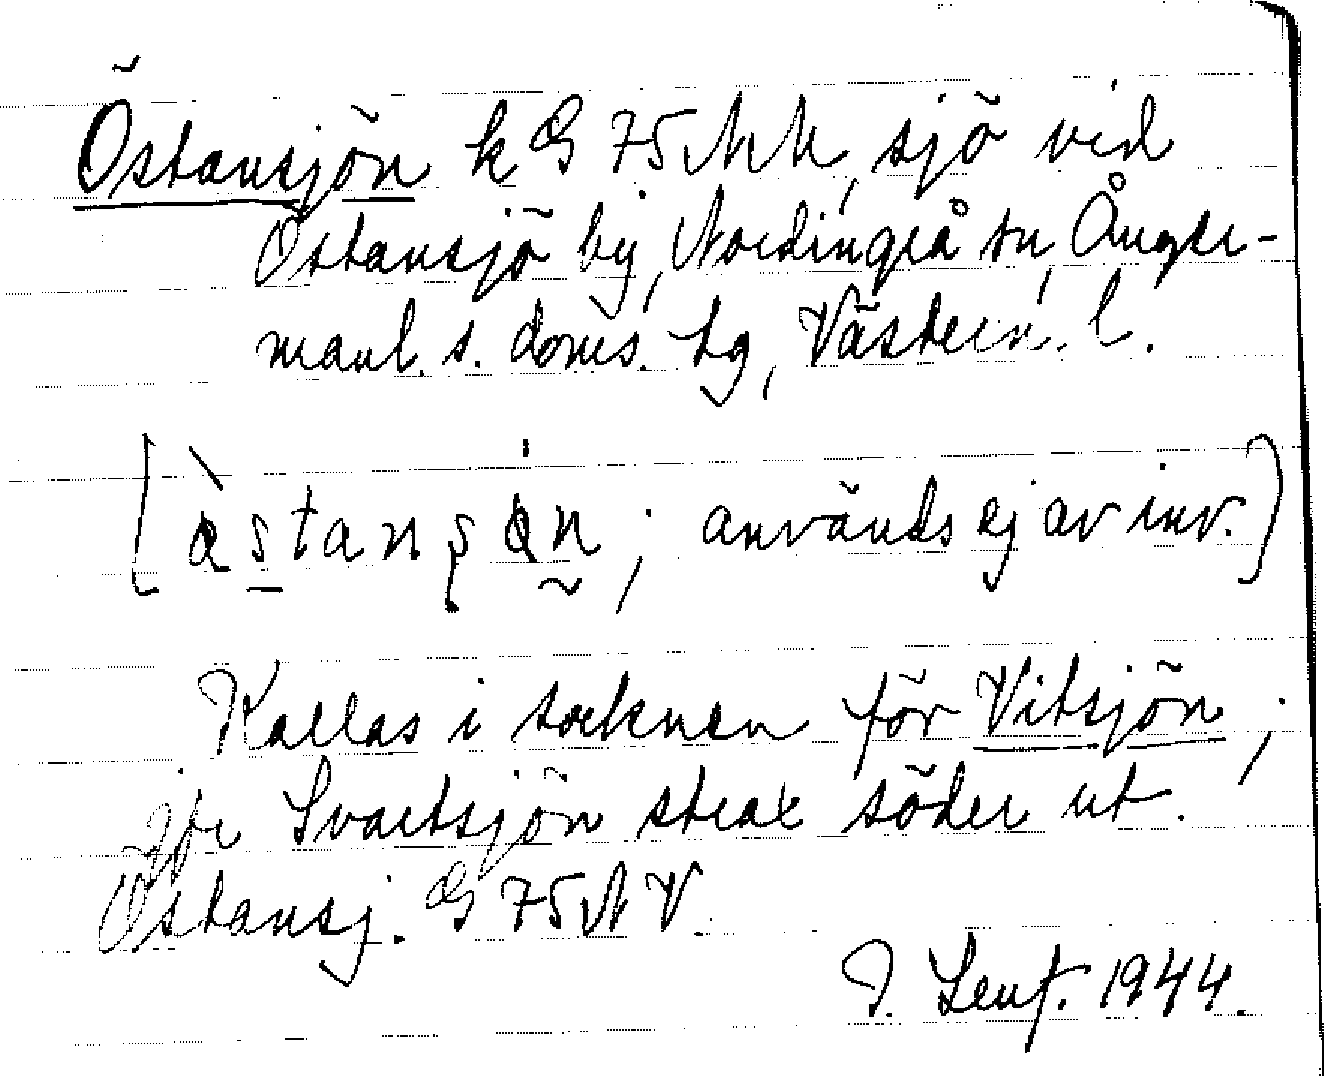 Östansjön k G 75 NM, sjö vid
Östansjö by, Nordingrå sn, Ånger-
manl. s. doms. tg, Västern. l.
[ östansön; används ej av inv.]
Kallas i socknen för Vitsjön;
Jfr Svartsjön strax söder ut.
Östansj. G 75 NV.
J. 1944.